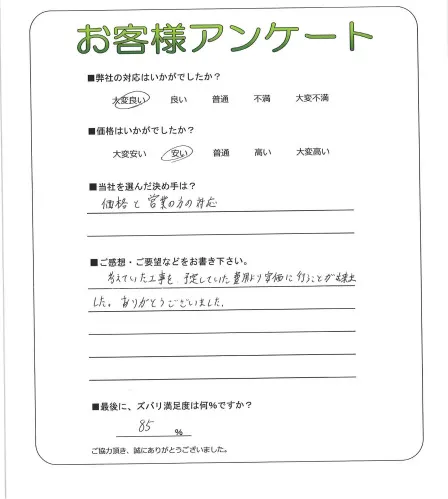 お客様アンケート
■弊社の対応はいかがでしたか？
大変良い 良い 普通 不満 大変不満
■価格はいかがでしたか？
大変安い 安い 普通 高い 大変高い
■当社を選んだ決め手は？
価格と営業の方の対応
■ご感想・ご要望などをお書き下さい。
考えていた工事を、予定していた費用より安価に行うことが出来ま
した。ありがとうございました。
■最後に、ズバリ満足度は何%ですか？
85 %
ご協力頂き、誠にありがとうございました。